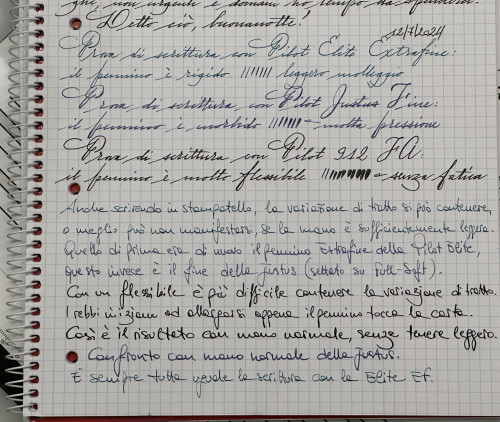 più, non urgente e domani ho tempo da
Detto ciò, buonanotte!
12/7/2024
Prova di scrittura con Pilot Elite Extrafine:
il pennino è rigido leggero molleggio
Prova di scrittura con Pilot Justus Fine:
il pennino è morbido molta pressione
Prova di scrittura con Pilot 912 FA:
il pennino è molto flessibile senza fatica
Anche scrivendo in stampatello, la variazione di tratto si può contenere,
o meglio può non manifestarsi, se la mano è sufficientemente leggera.
Quello di prima era di nuovo il pennino Extrafine della Pilot Elite,
questo invece è il fine della Justus (settato su full-soft).
Con un flessibile è più difficile contenere la variazione di tratto.
I rebbi iniziano ad allargarsi appena il pennino tocca la carta.
Così è il risultato con mano normale, senza tenere leggero.
Confronto con mano normale della Justus.
È sempre tutta uguale la scrittura con la Elite EF.